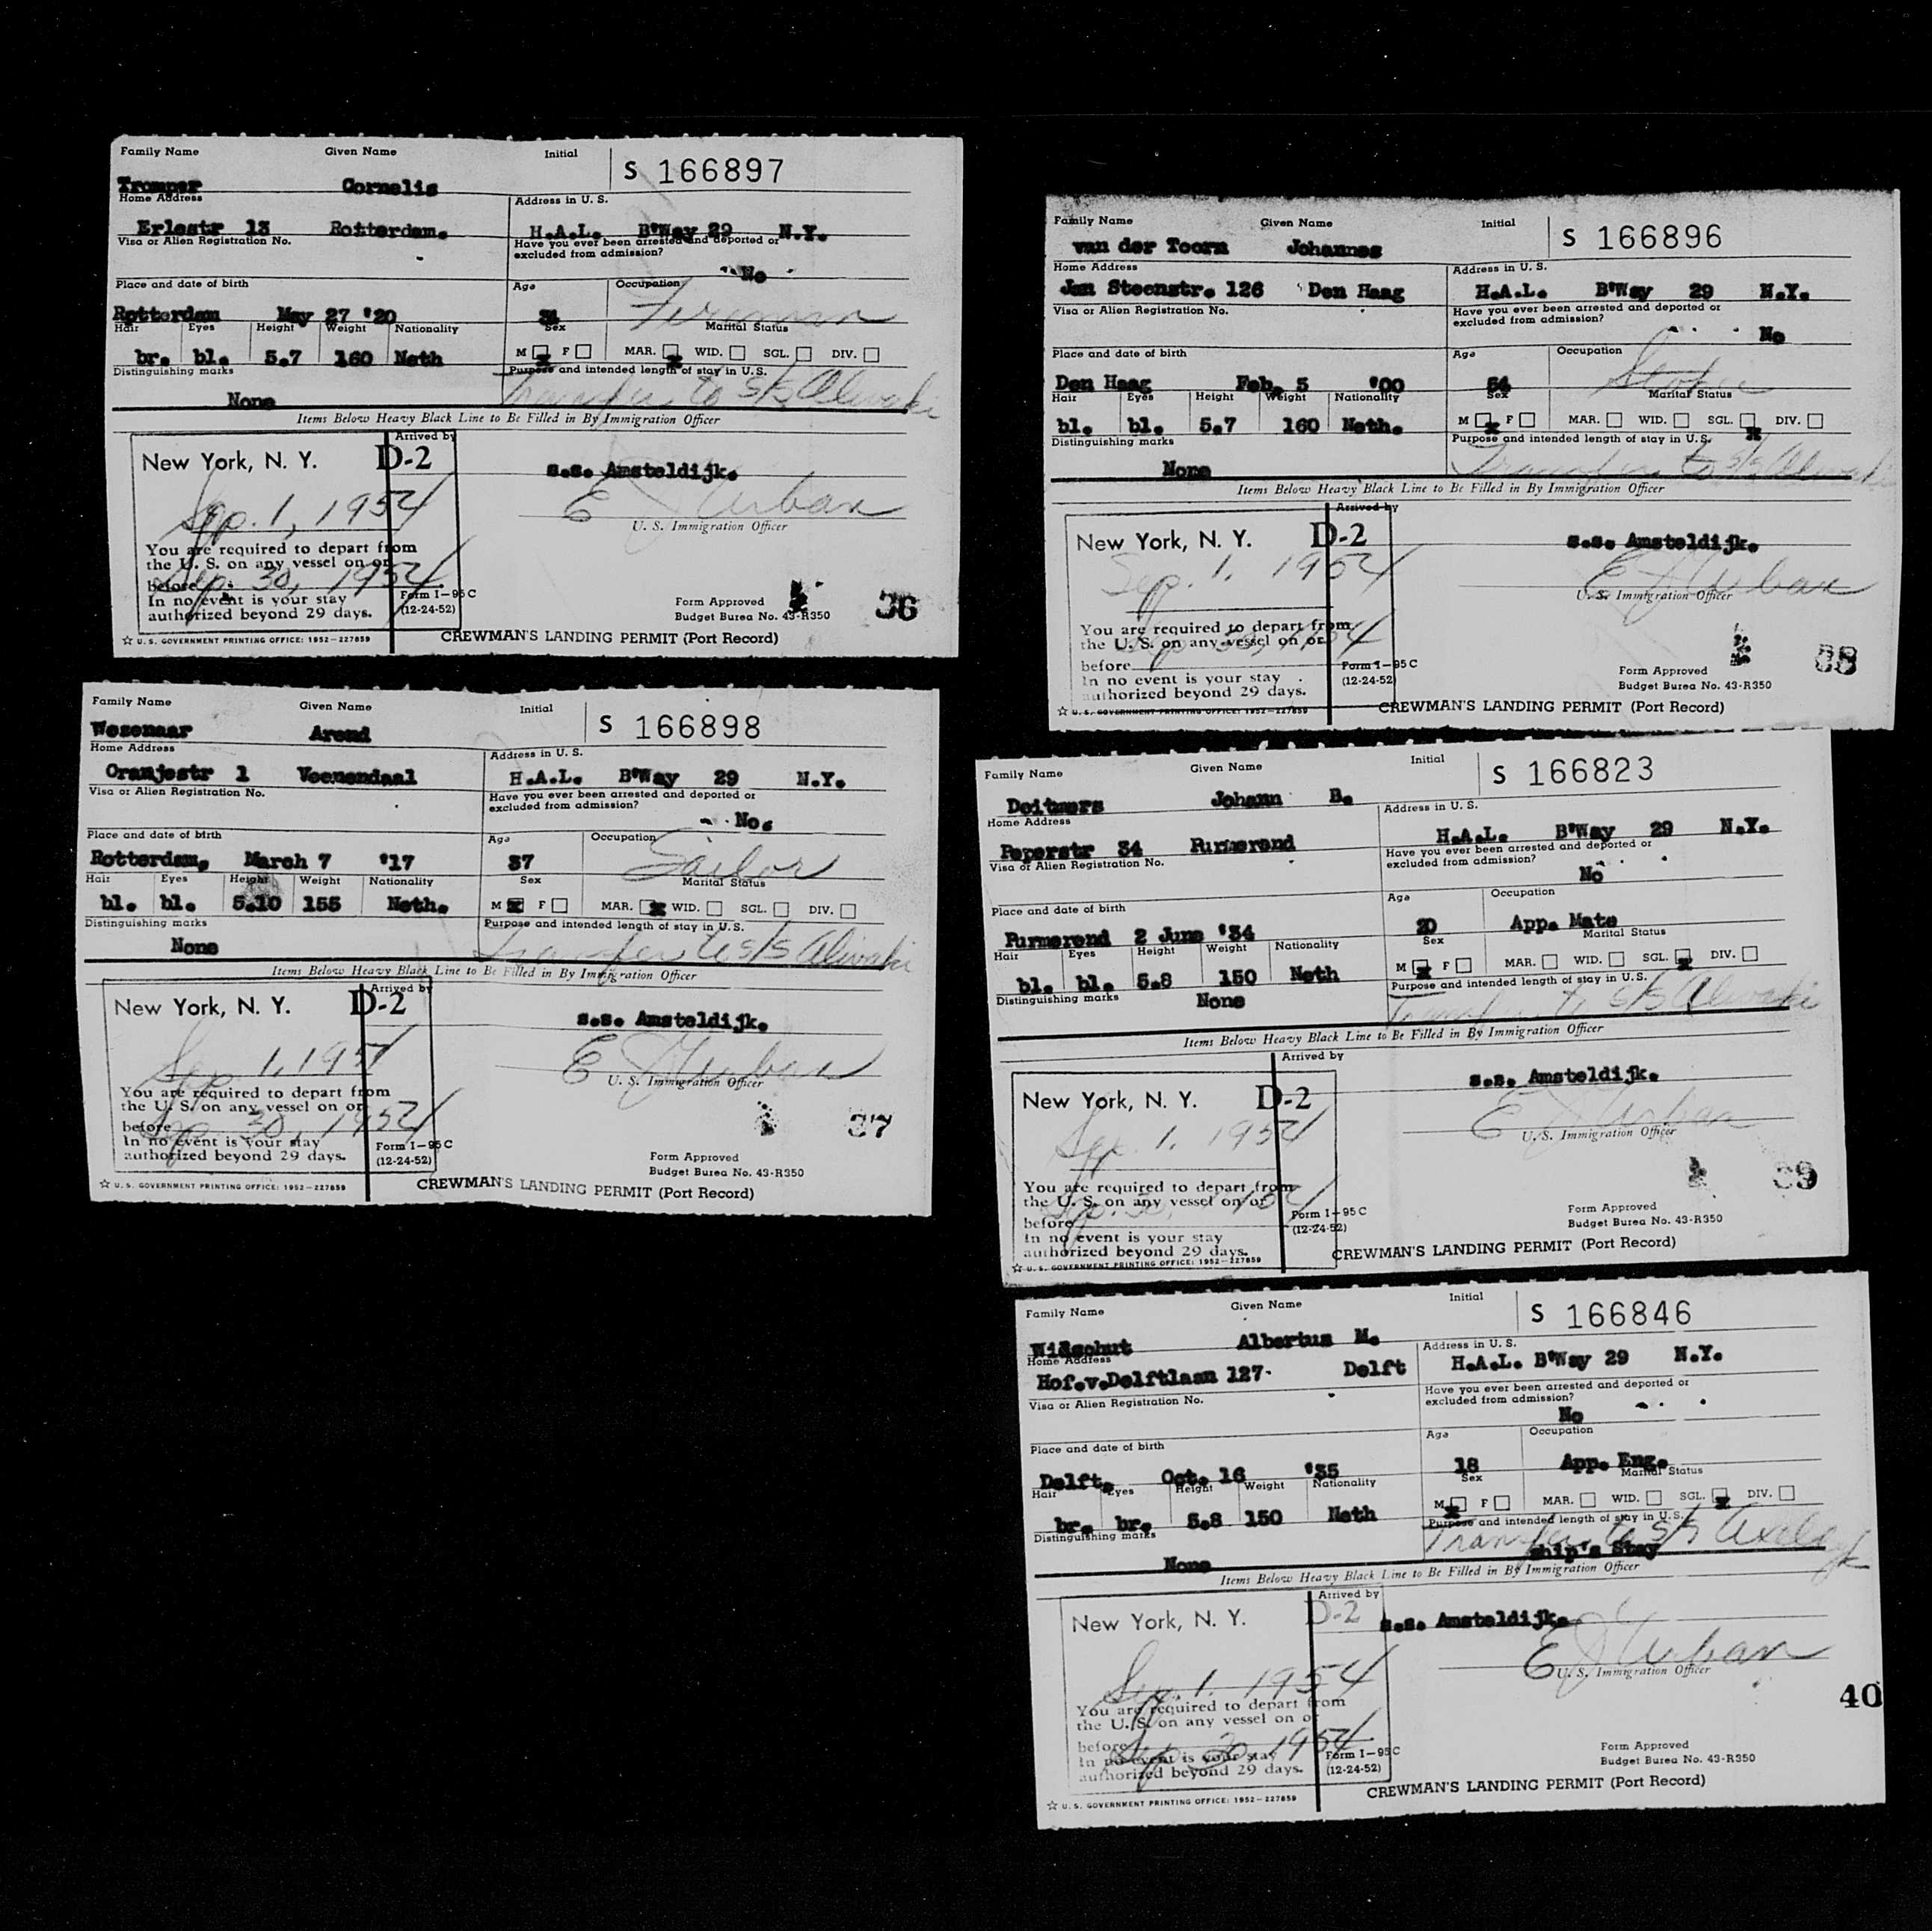 Family Name Given Name Initial S 166897
Tromper Cornelis
Home Address Address in U. S.
Erlestr 13 Rotterdam. H.A.L. B'Way 29 N.Y.
Visa or Alien Registration No. Have you ever been arrested and deported or excluded from admission?
No
Place and date of birth Age Occupation
Rotterdam May 27 '20 34 Fireman
Hair Eyes Height Weight Nationality Sex Marital Status
br. bl. 5.7 160 Neth M F MAR. WID. SGL. DIV.
Distinguishing marks Purpose and intended length of stay in U.S.
None Transfer to s/s Alwaki
Items Below Heavy Black Line to Be Filled in By Immigration Officer
Arrived by
New York, N. Y. D-2 s.s. Amsteldijk.
Sep. 1, 1954 E J Urban
U. S. Immigration Officer
You are required to depart from
the U. S. on any vessel on or
before Sep. 30, 1954
In no event is your stay
authorized beyond 29 days.
Form I-95 C
(12-24-52)
Form Approved
Budget Burea No. 43-R350
36
☆ U. S. GOVERNMENT PRINTING OFFICE: 1952—227859
CREWMAN'S LANDING PERMIT (Port Record)
Family Name Given Name Initial S 166898
Wezenaar Arend
Home Address Address in U. S.
Oranjestr 1 Veenendaal H.A.L. B'Way 29 N.Y.
Visa or Alien Registration No. Have you ever been arrested and deported or excluded from admission?
No.
Place and date of birth Age Occupation
Rotterdam, March 7 '17 37 Sailor
Hair Eyes Height Weight Nationality Sex Marital Status
bl. bl. 5.10 155 Neth. M F MAR. WID. SGL. DIV.
Distinguishing marks Purpose and intended length of stay in U.S.
None Transfer to s/s Alwaki
Items Below Heavy Black Line to Be Filled in By Immigration Officer
Arrived by
New York, N. Y. D-2 s.s. Amsteldijk.
Sep 1, 1954 E J Urban
U. S. Immigration Officer
You are required to depart from
the U. S. on any vessel on or
before Sep 30, 1954
In no event is your stay
authorized beyond 29 days.
Form I-95 C
(12-24-52)
Form Approved
Budget Burea No. 43-R350
37
☆ U. S. GOVERNMENT PRINTING OFFICE: 1952—227859
CREWMAN'S LANDING PERMIT (Port Record)
Family Name Given Name Initial S 166896
van der Toorn Johannes
Home Address Address in U. S.
Jan Steenstr. 126 Den Haag H.A.L. B'Way 29 N.Y.
Visa or Alien Registration No. Have you ever been arrested and deported or excluded from admission?
No
Place and date of birth Age Occupation
Den Haag Feb. 5 '00 54 Stoker
Hair Eyes Height Weight Nationality Sex Marital Status
bl. bl. 5.7 160 Neth. M F MAR. WID. SGL. DIV.
Distinguishing marks Purpose and intended length of stay in U.S.
None Transfer to s/s Alwaki
Items Below Heavy Black Line to Be Filled in By Immigration Officer
Arrived by
New York, N. Y. D-2 s.s. Amsteldijk.
Sep. 1, 1954 E J Urban
U. S. Immigration Officer
You are required to depart from
the U. S. on any vessel on or
before Sep 30, 1954
In no event is your stay
authorized beyond 29 days.
Form I-95 C
(12-24-52)
Form Approved
Budget Burea No. 43-R350
38
☆ U. S. GOVERNMENT PRINTING OFFICE: 1952—227859
CREWMAN'S LANDING PERMIT (Port Record)
Family Name Given Name Initial S 166823
Deitmers Johann B.
Home Address Address in U. S.
Peperstr 34 Purmerend H.A.L. B'Way 29 N.Y.
Visa or Alien Registration No. Have you ever been arrested and deported or excluded from admission?
No
Place and date of birth Age Occupation
Purmerend 2 June '34 20 App. Mate
Hair Eyes Height Weight Nationality Sex Marital Status
bl. bl. 5.8 150 Neth M F MAR. WID. SGL. DIV.
Distinguishing marks Purpose and intended length of stay in U.S.
None Transfer to s/s Alwaki
Items Below Heavy Black Line to Be Filled in By Immigration Officer
Arrived by
New York, N. Y. D-2 s.s. Amsteldijk.
Sep. 1, 1954 E J Urban
U. S. Immigration Officer
You are required to depart from
the U. S. on any vessel on or
before Sep. 30, 1954
In no event is your stay
authorized beyond 29 days.
Form I-95 C
(12-24-52)
Form Approved
Budget Burea No. 43-R350
39
☆ U. S. GOVERNMENT PRINTING OFFICE: 1952—227859
CREWMAN'S LANDING PERMIT (Port Record)
Family Name Given Name Initial S 166846
Widschut Albertus M.
Home Address Address in U. S.
Hof.v.Delftlaan 127 Delft H.A.L. B'Way 29 N.Y.
Visa or Alien Registration No. Have you ever been arrested and deported or excluded from admission?
No
Place and date of birth Age Occupation
Delft, Oct. 16 '35 18 App. Eng.
Hair Eyes Height Weight Nationality Sex Marital Status
br. br. 5.8 150 Neth M F MAR. WID. SGL. DIV.
Distinguishing marks Purpose and intended length of stay in U.S.
None Transfer to s/s Axeldyk
Ship's Stay
Items Below Heavy Black Line to Be Filled in By Immigration Officer
Arrived by
New York, N. Y. D-2 s.s. Amsteldijk.
Sep. 1, 1954 E J Urban
U. S. Immigration Officer
You are required to depart from
the U. S. on any vessel on or
before Sep 30, 1954
In no event is your stay
authorized beyond 29 days.
Form I-95 C
(12-24-52)
Form Approved
Budget Burea No. 43-R350
40
☆ U. S. GOVERNMENT PRINTING OFFICE: 1952—227859
CREWMAN'S LANDING PERMIT (Port Record)